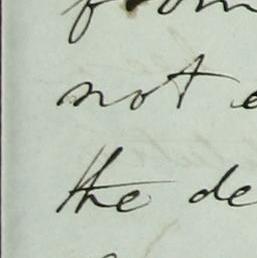 from
not
the de